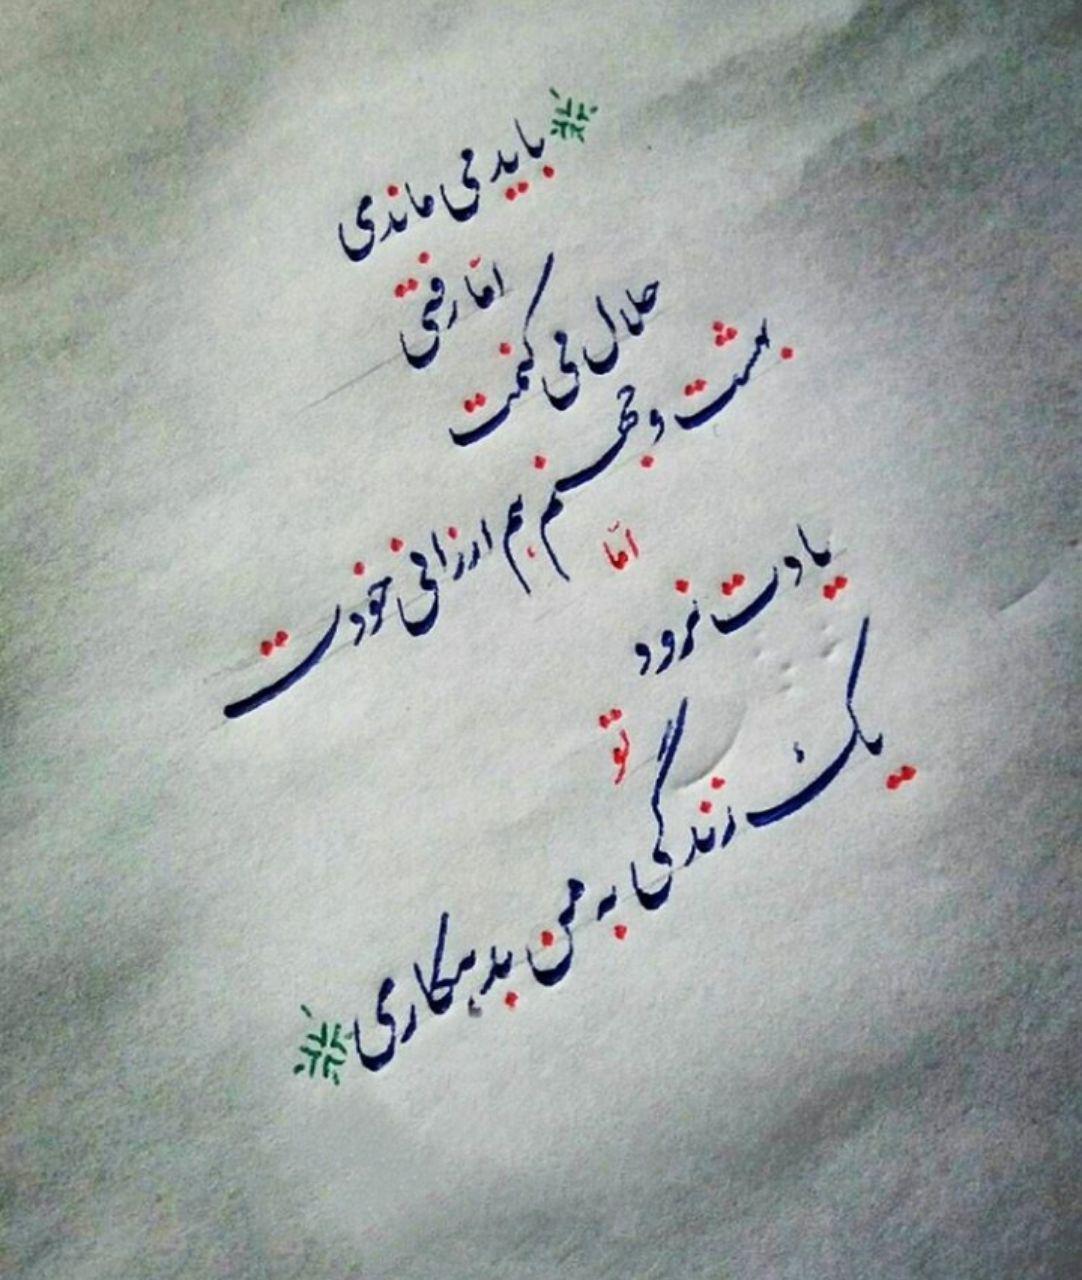 باید می ماندی
امّا رفتی
حلال می کنمت
بهشت و جهنم هم ارزانی خودت
امّا
یادت نرود
تو
یک زندگی به من بدهکاری